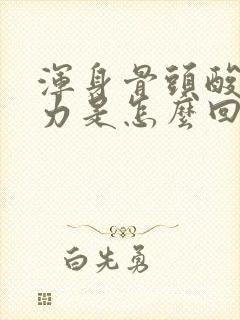 渾身骨頭酸
力是怎麼回
白先勇